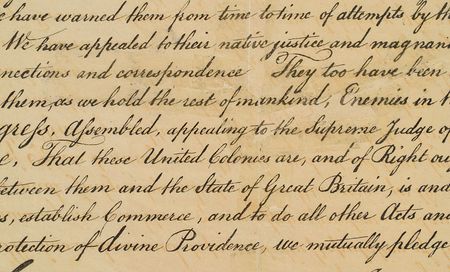 we have warned them from time to time of attempts by th
We have appealed to their native justice and magnan
nnections and correspondence They too have been
them, as we hold the rest of mankind, Enemies in t
gress, Assembled, appealing to the Supreme Judge of
e, That these United Colonies are, and of Right ou
between them and the State of Great Britain, is and
s, establish Commerce, and to do all other Acts and
rotection of divine Providence, we mutually pledge